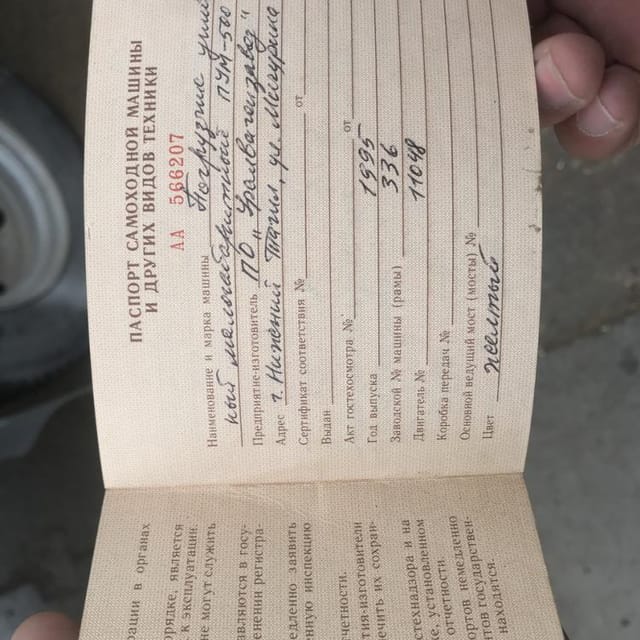 ПАСПОРТ САМОХОДНОЙ МАШИНЫ
И ДРУГИХ ВИДОВ ТЕХНИКИ
АА 566207
Наименование и марка машины Погрузчик
малогабаритный ПУМ-500
Предприятие-изготовитель ПО „Уралвагонзавод"
Адрес г. Нижений Тагил, ул.
Сертификат соответствия № от
Выдан
Акт гостехосмотра № от
Год выпуска 1995
Заводской № машины (рамы) 336
Двигатель № 11048
Коробка передач №
Основной ведущий мост (мосты) №
Цвет желтый
рации в органах
орядке, является
к эксплуатации.
не могут служить
авляются в госу-
енении регистра-
едленно заявить
енную инспекцию
четности.
тия-изготовители
ечить их сохран-
стехнадзора и на
ке, установленном
отчетности
ортов немедленно
ргов государствен-
находятся.